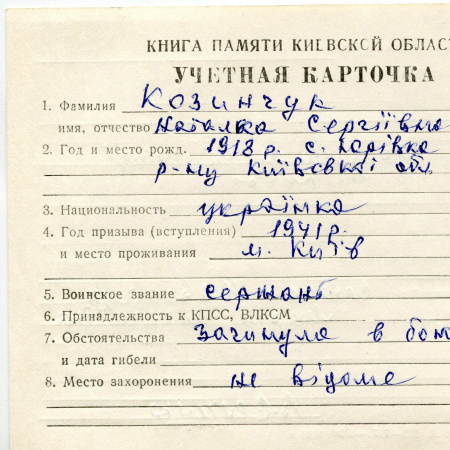 КНИГА ПАМЯТИ КИЕВСКОЙ ОБЛАС
УЧЕТНАЯ КАРТОЧКА
1. Фамилия Козинчук
имя, отчество Наталка Сергіївна
2. Год и место рожд. 1918 р. с.
р-ну Київської обл.
3. Национальность українка
4. Год призыва (вступления) 1941 р.
и место проживания м. Київ
5. Воинское звание сержант
6. Принадлежность к КПСС, ВЛКСМ
7. Обстоятельства загинула в бою
и дата гибели
8. Место захоронения не відоме